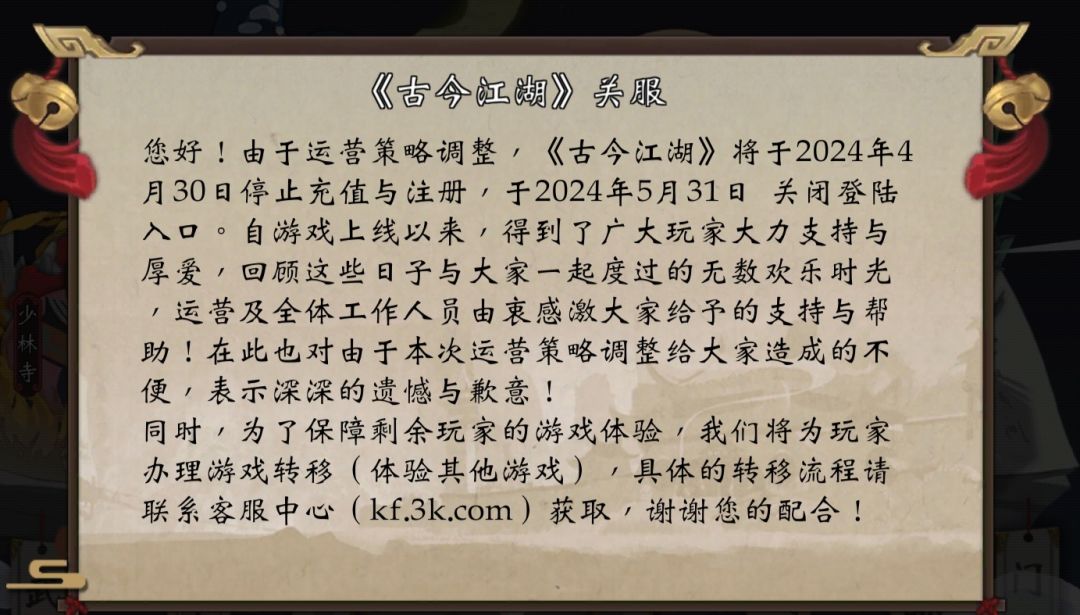 《古今江湖》关服
您好！由于运营策略调整，《古今江湖》将于2024年4
月30日停止充值与注册，于2024年5月31日 关闭登陆
入口。自游戏上线以来，得到了广大玩家大力支持与
厚爱，回顾这些日子与大家一起度过的无数欢乐时光
，运营及全体工作人员由衷感激大家给予的支持与帮
助！在此也对由于本次运营策略调整给大家造成的不
便，表示深深的遗憾与歉意！
同时，为了保障剩余玩家的游戏体验，我们将为玩家
办理游戏转移（体验其他游戏），具体的转移流程请
联系客服中心（kf.3k.com）获取，谢谢您的配合！
少林寺
武
门